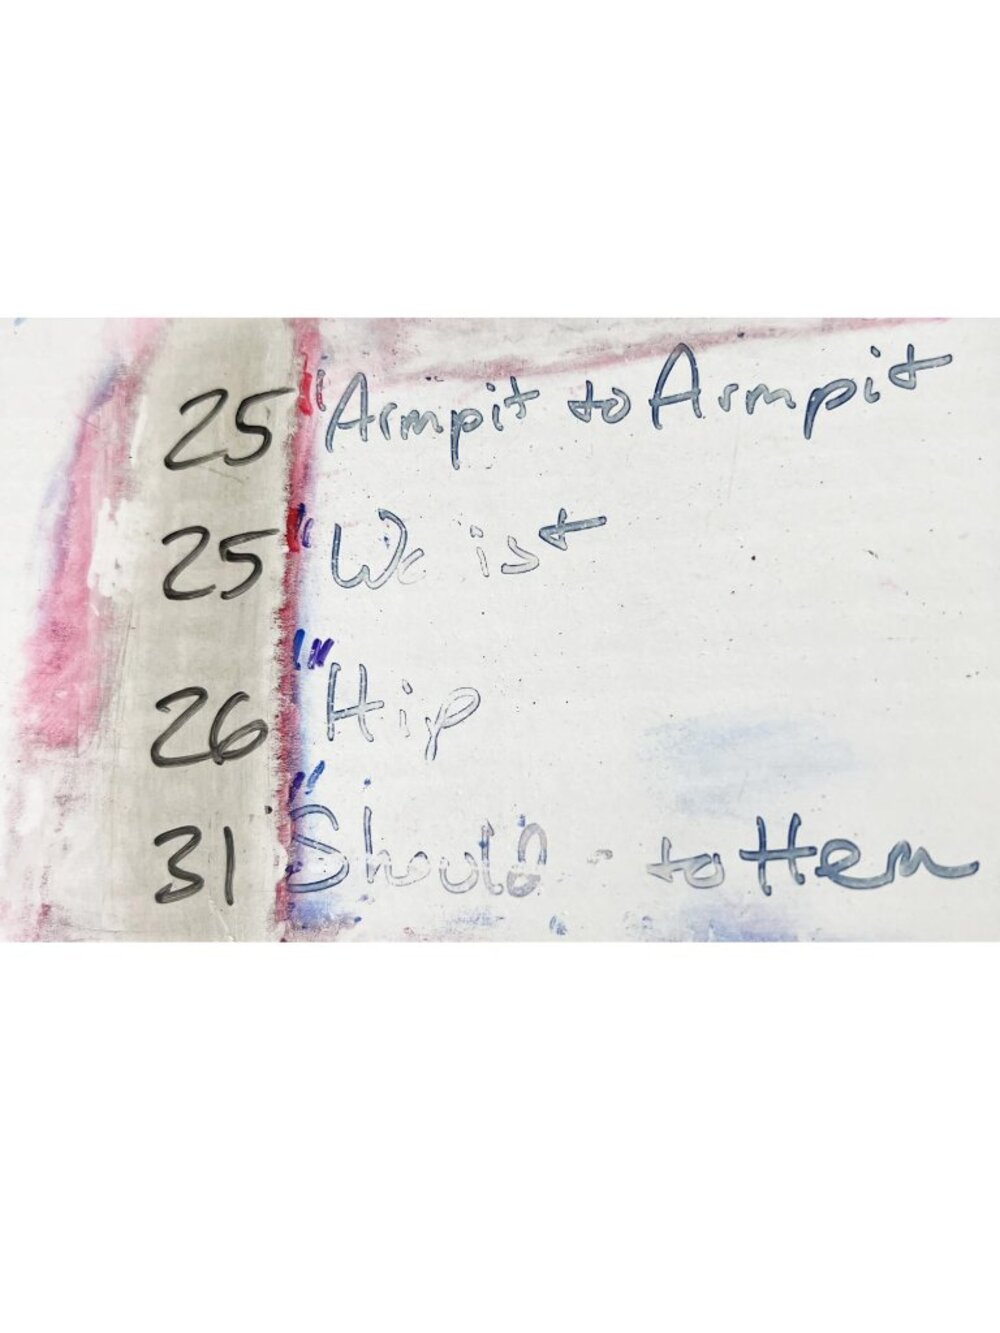 25" Armpit to Armpit
25" Waist
26" Hip
31" - to Hem